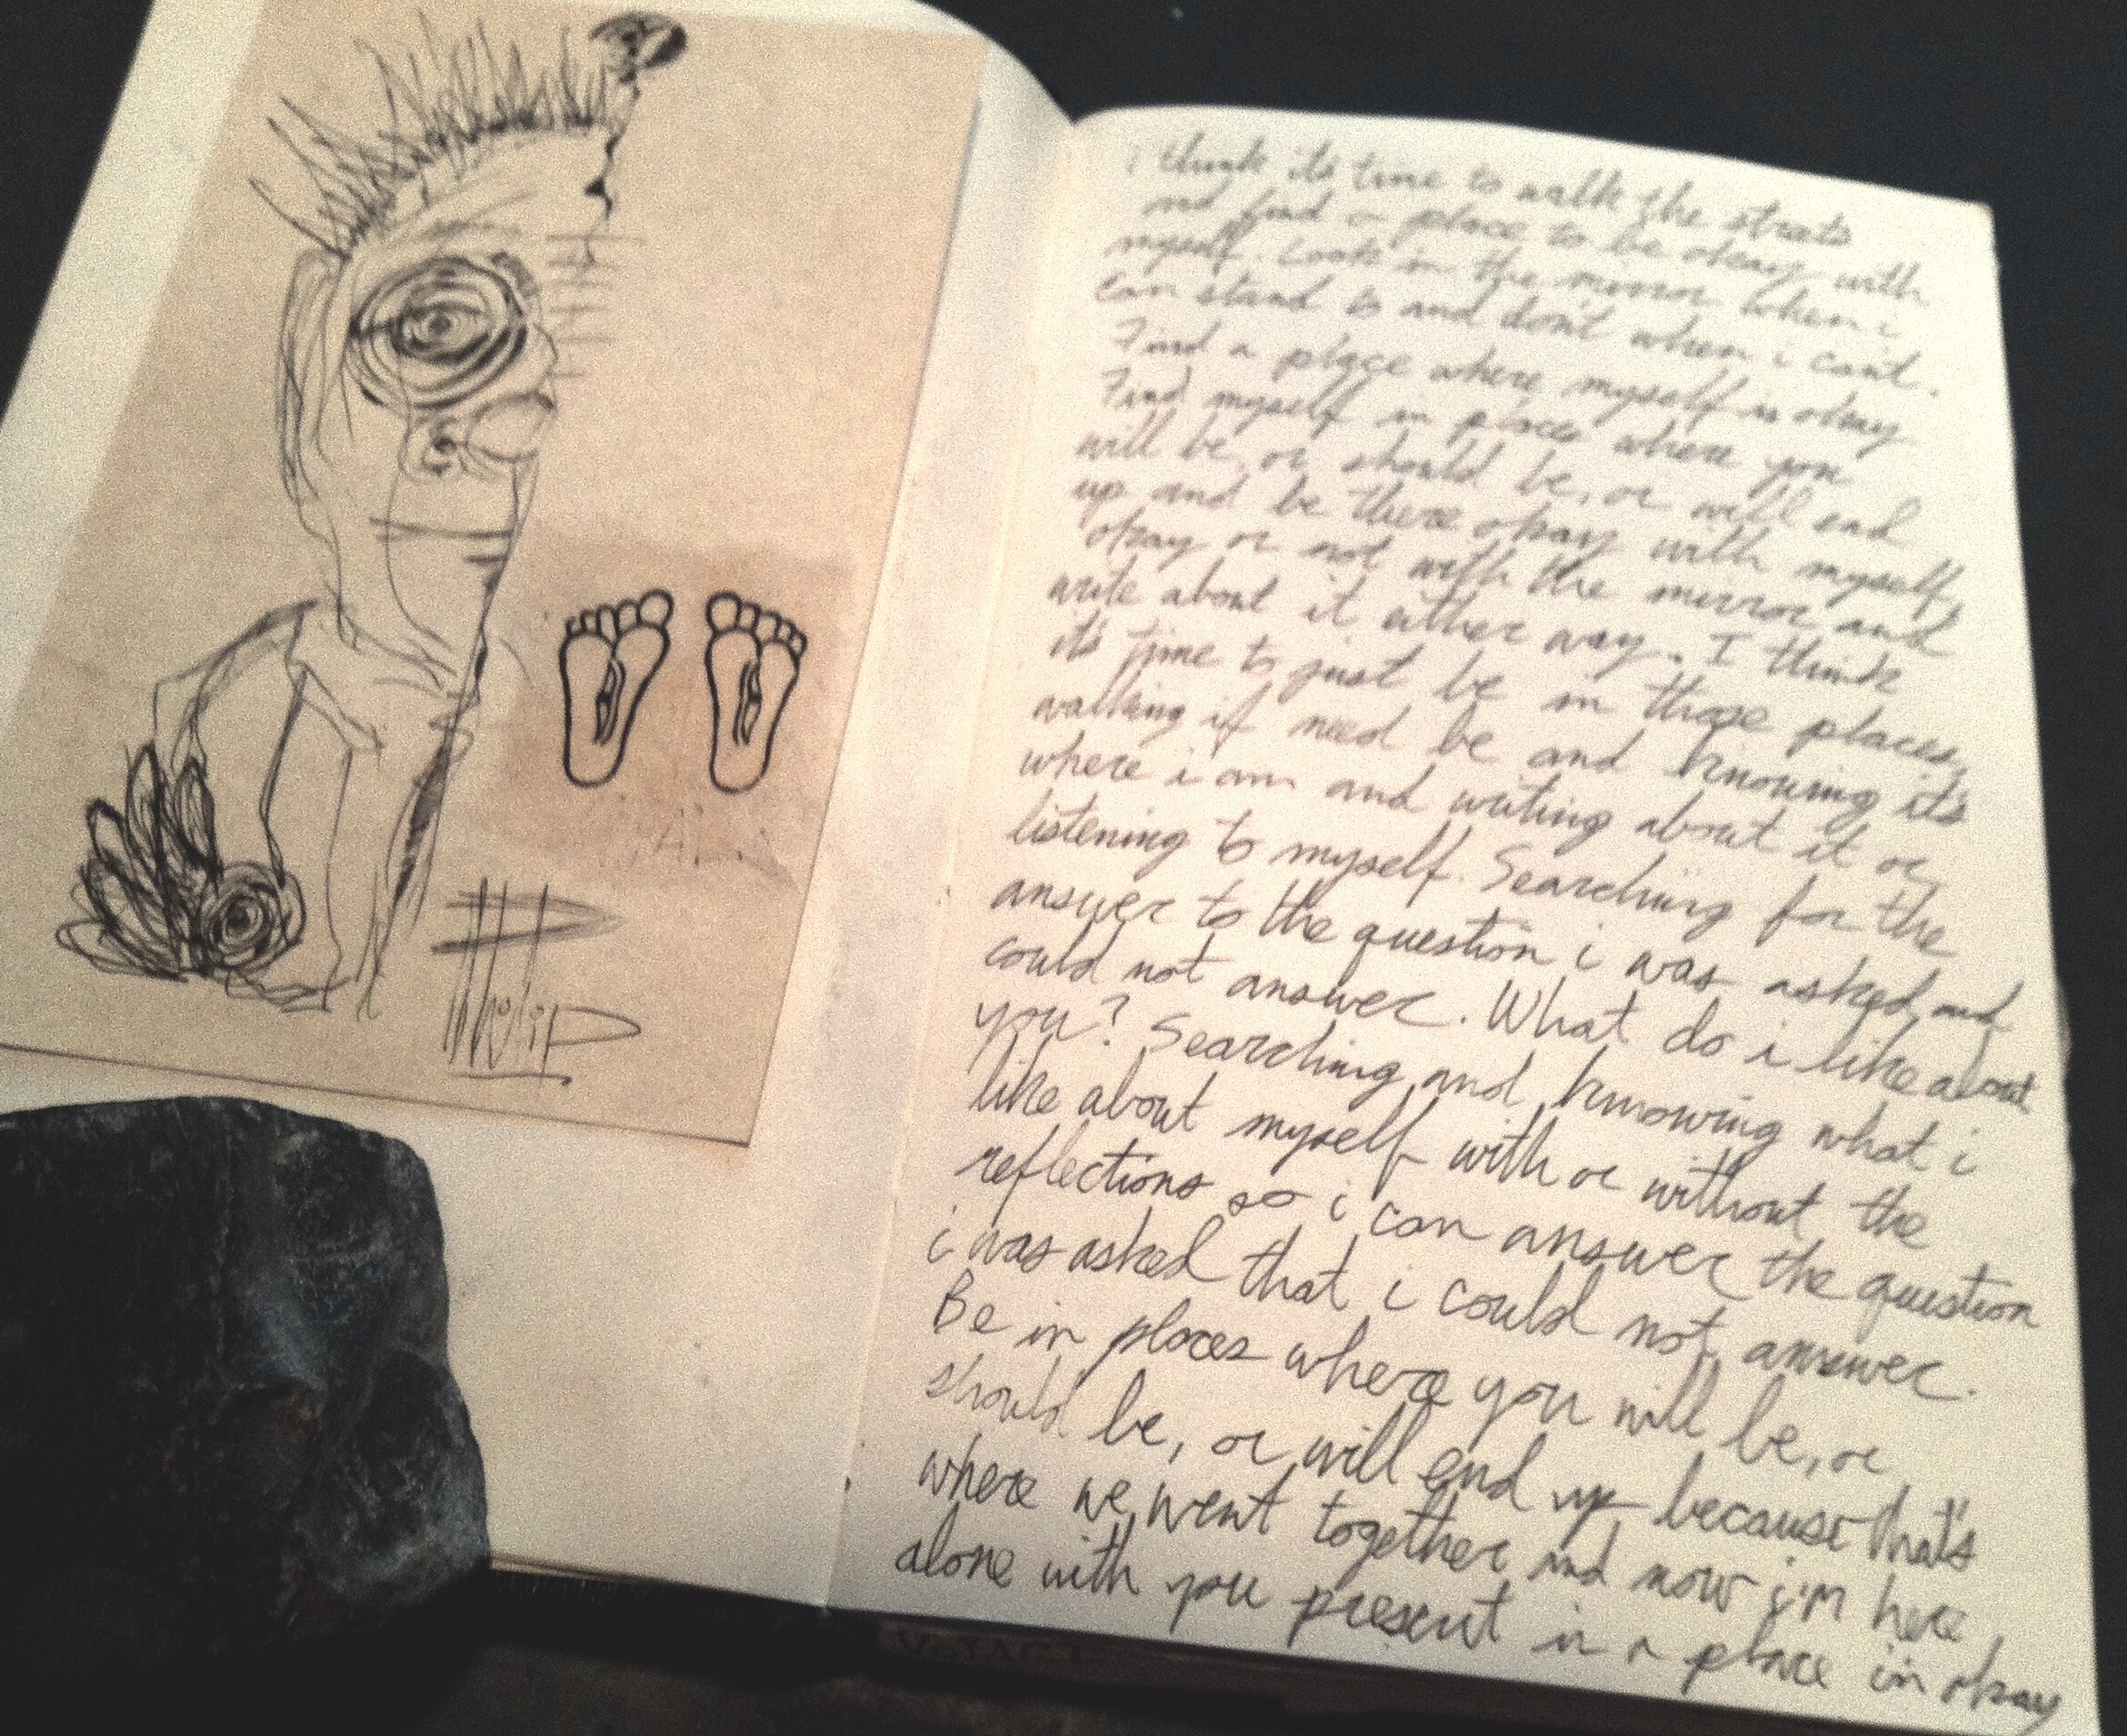 Philip
i think its time to walk the streets
and find a place to be okay with
myself. Look in the mirror when i
can stand to and don't when i can't.
Find a place where myself is okay
Find myself in places where you
will be, or should be, or will end
up and be there okay with myself,
okay or not with the mirror and
write about it either way. I think
it's time to just be in those places,
walking if need be and knowing it's
where i am and writing about it or
listening to myself. Searching for the
answer to the question i was asked and
could not answer. What do i like about
you? Searching and knowing what i
like about myself with or without the
reflections so i can answer the question
i was asked that i could not answer.
Be in places where you will be, or
should be, or will end up because that's
where we went together and now i'm here
alone with you present in a place in okay